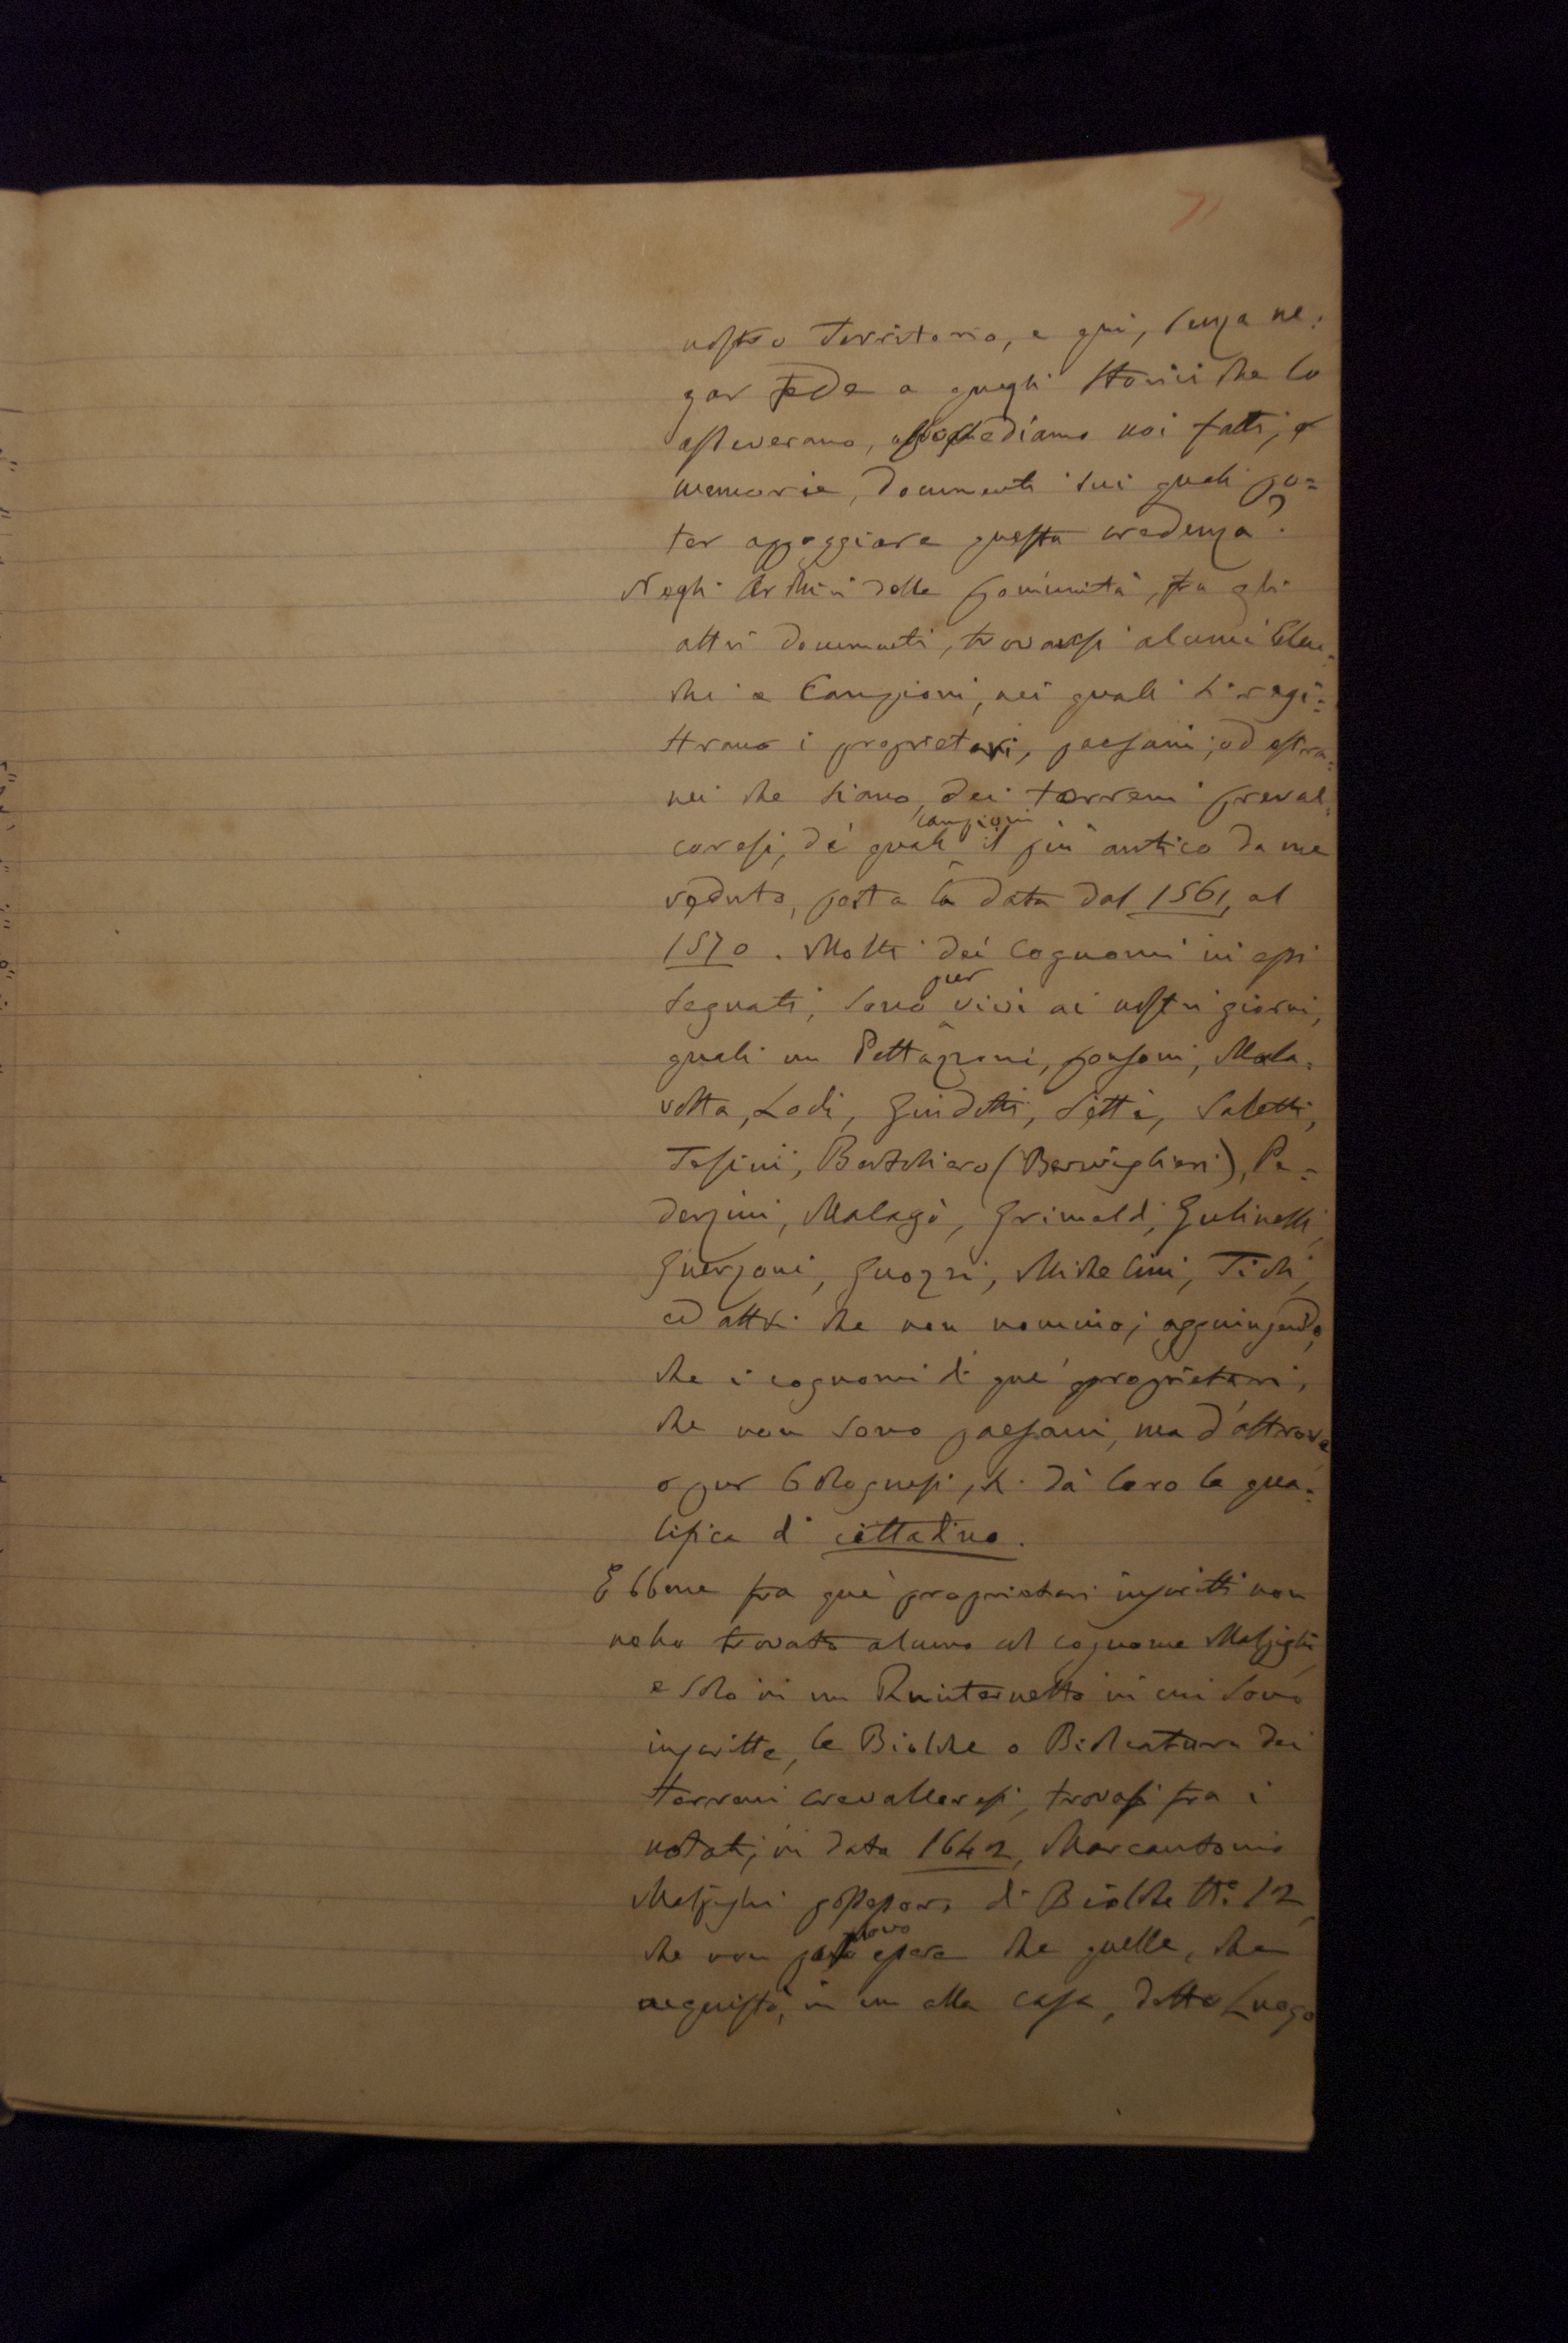 71
nostro Territorio, e qui, senza ne=
gar fede a quegli Storici che lo
asseverano, possediamo noi fatti, o
memorie, documenti sui quali po=
ter appoggiare questa credenza?
Negli Archivi della Comunità, fra gli
altri documenti, trovansi alcuni Elen=
chi e Campioni, nei quali si regi=
strano i proprietari, paesani, od estra=
nei che siano, dei terreni Creval=
coresi, de' quali campioni il più antico da me
veduto, porta la data dal 1561, al
1570. Molti dei Cognomi in essi
segnati, sono pur vivi ai nostri giorni,
quali un Pettazzoni, Consoni, Mala=
volta, Lodi, Guidetti, Setti, Saletti,
Tesini, (Berveglieri), Pe=
derzini, Malagò, Grimaldi, Gulinelli,
Guerzoni, Guozzi, Michelini, Tichi,
ed altri che non nomino; aggiungendo,
che i cognomi di que' proprietari,
che non sono paesani, ma d'altrove
o pur Bolognesi, si dà loro la qua=
lifica di cittadino.
Ebbene fra que' proprietari inscritti non
ne ho trovato alcuno col cognome Malpighi,
e solo in un Quinternetto in cui sono
inscritte, le Biolche o Biolcatura dei
terreni Crevalcoresi, trovasi fra i
notati, in data 1642, Marcantonio
Malpighi possessore di Biolche tt.e 12,
che non ponno essere che quelle, che
acquistò, in un alla casa, detta Luogo